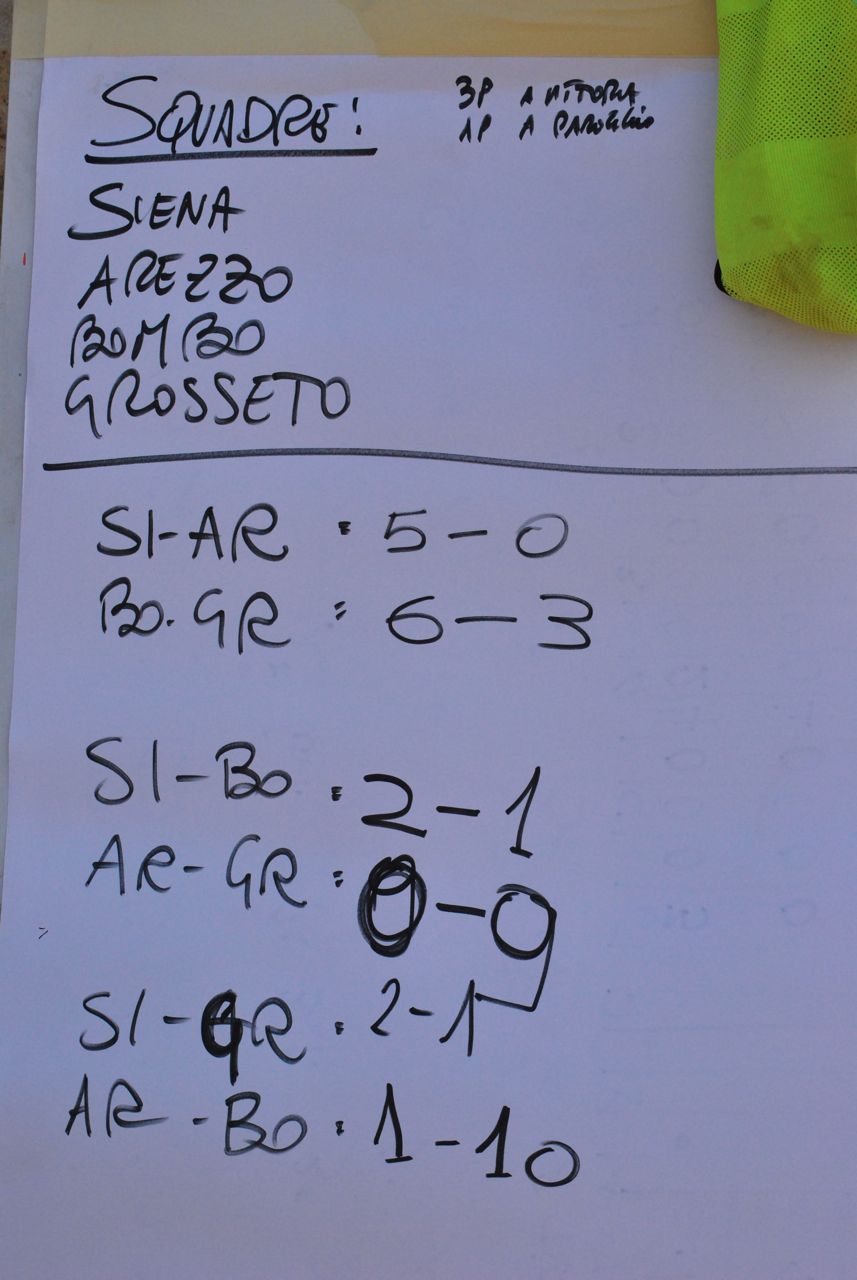 SQUADRE:
3P A VITTORIA
1P A PAREGGIO
SIENA
AREZZO
BOMBO
GROSSETO
SI-AR : 5-0
BO.GR : 6-3
SI-BO : 2-1
AR-GR : 0-9
SI-GR : 2-1
AR-BO : 1-10